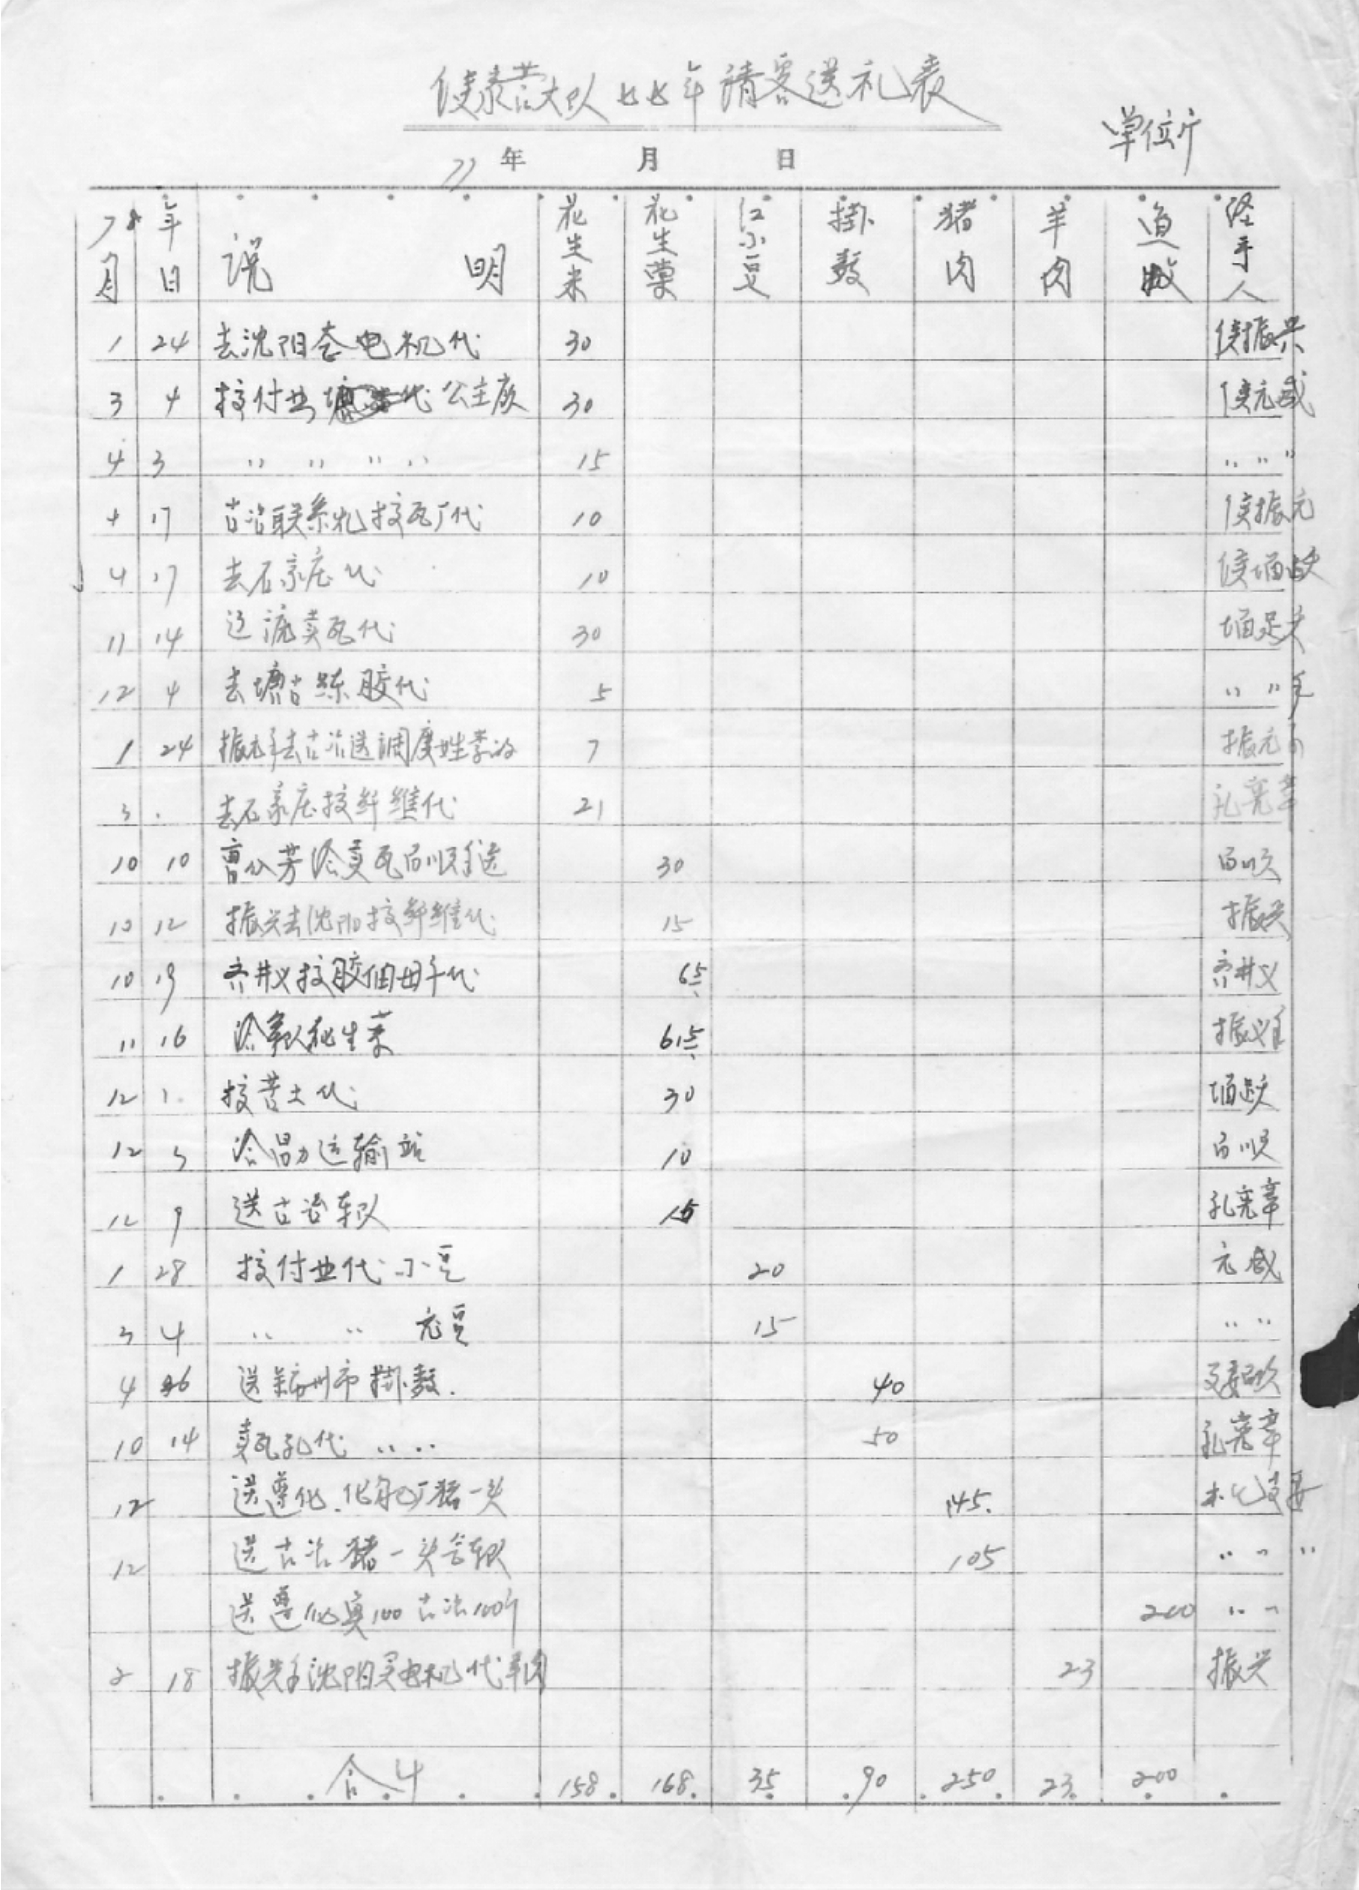 侯泰营大队七七年请客送礼表
单位斤
77年 月 日
78年 月 日 说明 花生米 花生菓 红小豆 掛麺 猪肉 羊肉 鱼 经手人
1 24 去沈阳套电机代 30 侯振兴
3 4 接付业 代公主灰 30 侯元成
4 3 〃 〃 〃 〃 15 〃 〃 〃
4 17 古冶联系礼接瓦厂代 10 侯振元
4 17 去石家庄代 10
11 14 卖瓦代 30
12 4 去塘古 胶代 5 〃 〃 手
1 24 振元手去古冶送调度姓李的 7 振元
3 . 去石家庄接纤维代 21 孔亮章
10 10 曹 芳给卖瓦 顺手送 30 顺
10 12 振兴去沈阳接纤维代 15 振兴
10 19 齐井义接胶 代 65 齐井义
11 16 给 队花生菓 615 振义
12 1. 接苦土代 30
12 3 给昌力运输站 10 顺
12 9 送古冶车队 15 孔亮章
1 28 接付业代小豆 20 元成
3 4 〃 〃 元豆 15 〃 〃
4 26 送 州市掛麺. 40 支委
10 14 卖瓦孔代 〃 〃 50 孔亮章
12 送遵化.化肥厂猪一头 145. 支委
12 送古冶猪一头给车队 105 〃 〃 〃
送遵化鱼100古冶100斤 200 〃 〃
2 18 振兴手沈阳买电机代羊肉 23 振兴
合计 158. 168. 35 90 250. 23. 200